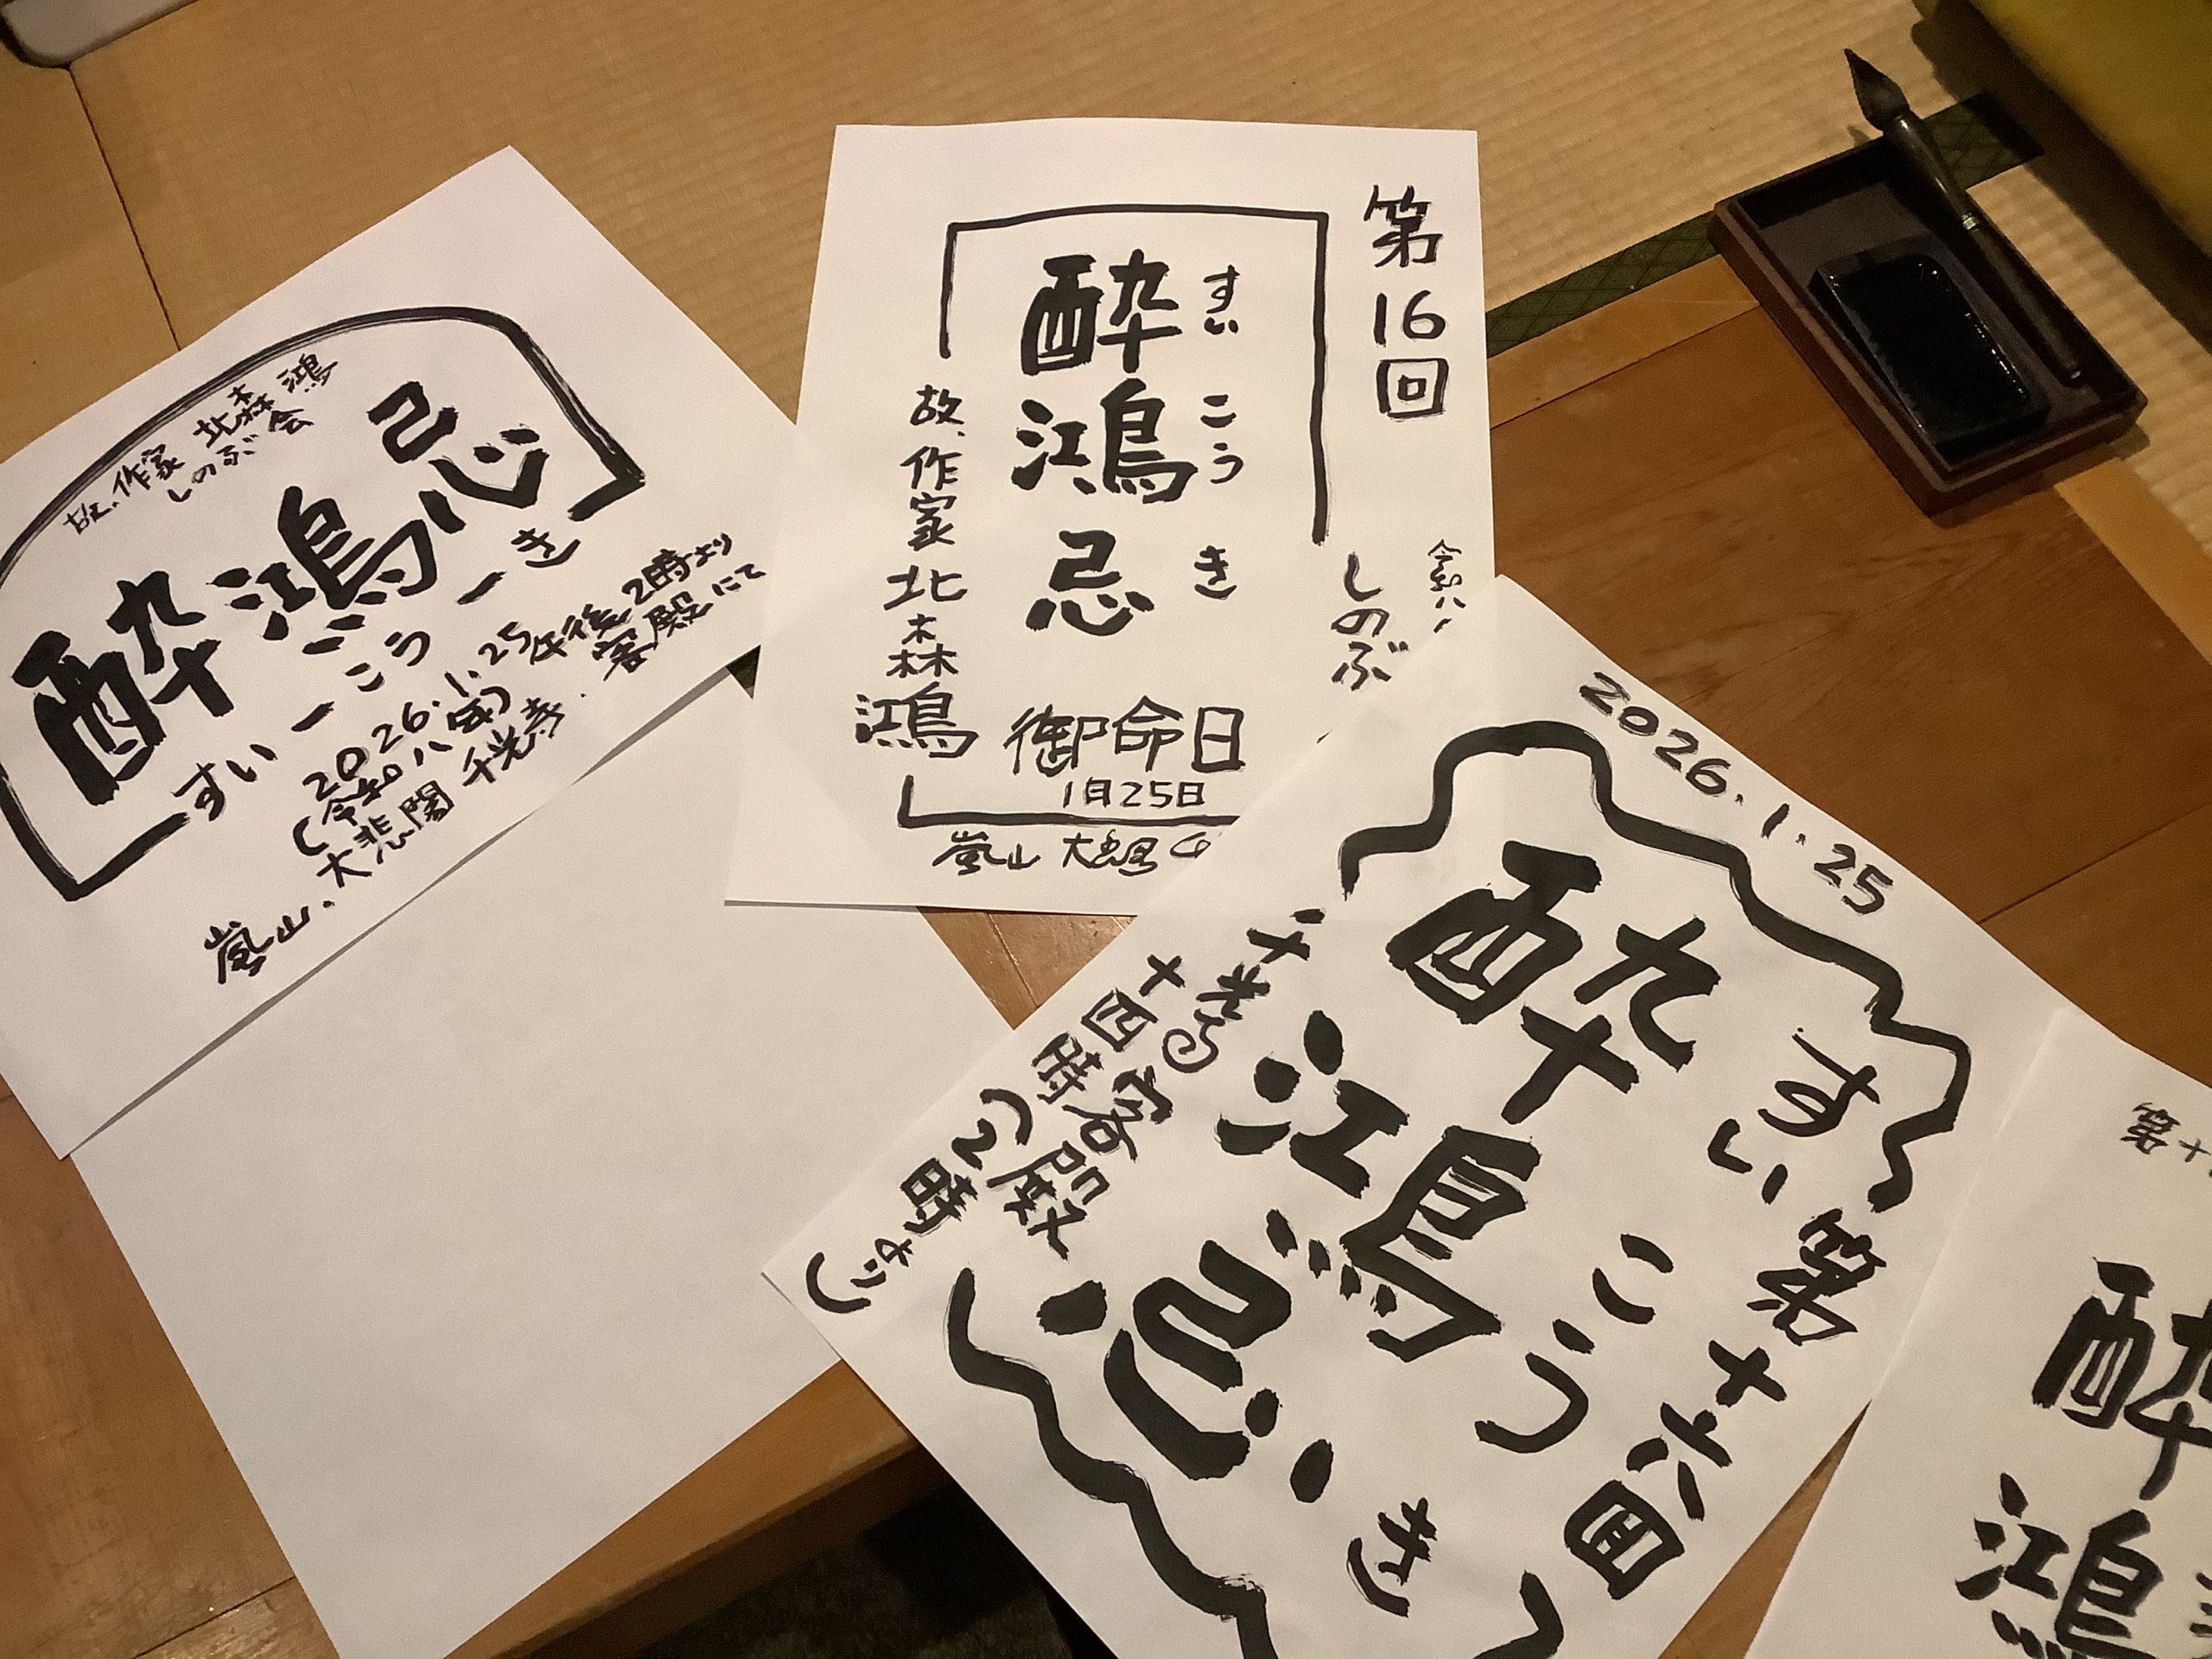 故、作家 北森 鴻
しのぶ会
酔鴻忌
すいーこうーき
2026.1.25午後2時より
(令和八年)
大悲閣 千光寺・客殿にて
嵐山、
第16回
すい こう き
酔鴻忌
御命日
1月25日
故、作家 北森 鴻
しのぶ
令和八
嵐山
2026.1.25
第十六回
すい こう き
酔鴻忌
千光寺
客殿
十四時
(2時より)
第十
酔鴻